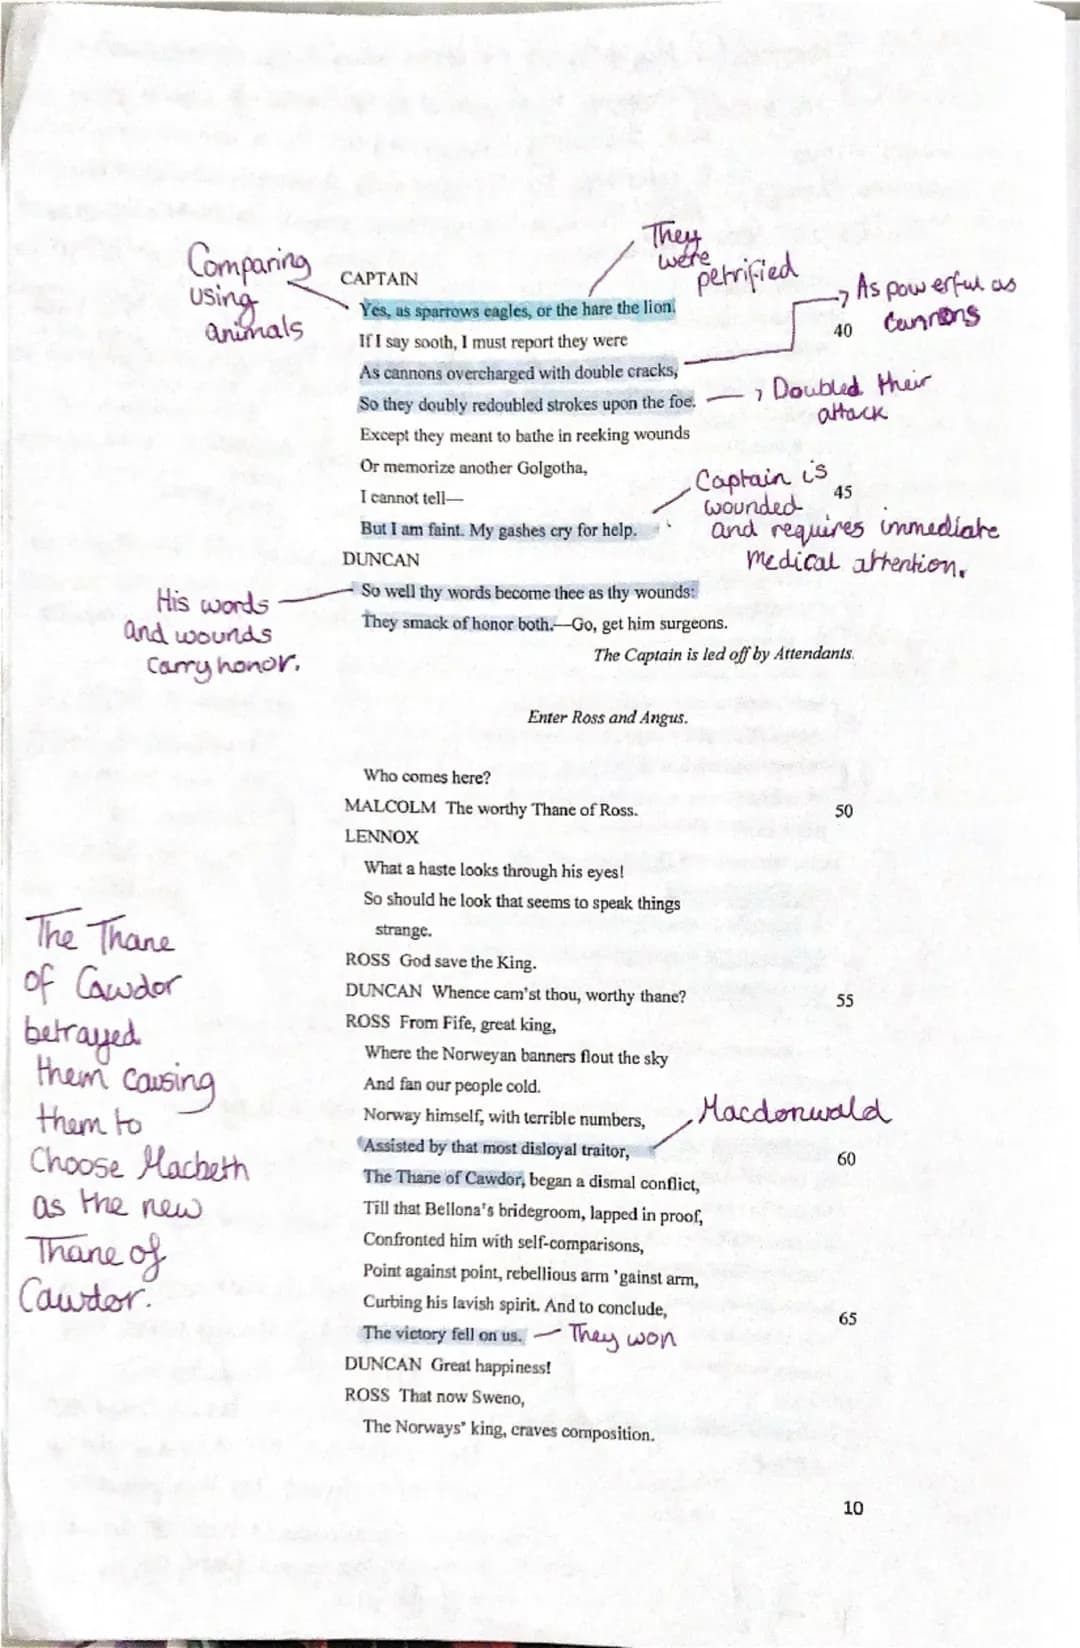 Comparing
using
animals
They
were
petrified
CAPTAIN
Yes, as sparrows eagles, or the hare the lion.
→ As powerful as
cannons
40
If I say sooth, I must report they were
As cannons overcharged with double cracks,
So they doubly redoubled strokes upon the foe.
→ Doubled their
attack
Except they meant to bathe in reeking wounds
Or memorize another Golgotha,
I cannot tell—
45
But I am faint. My gashes cry for help.
Captain is
wounded
and requires immediate
medical attention.
DUNCAN
So well thy words become thee as thy wounds:
They smack of honor both.—Go, get him surgeons.
His words
and wounds
carry honor.
The Captain is led off by Attendants.
Enter Ross and Angus.
Who comes here?
MALCOLM The worthy Thane of Ross.
50
LENNOX
What a haste looks through his eyes!
So should he look that seems to speak things
strange.
ROSS God save the King.
DUNCAN Whence cam'st thou, worthy thane?
55
ROSS From Fife, great king,
Where the Norweyan banners flout the sky
And fan our people cold.
Norway himself, with terrible numbers,
Macdonwald
Assisted by that most disloyal traitor,
60
The Thane of Cawdor, began a dismal conflict,
Till that Bellona's bridegroom, lapped in proof,
Confronted him with self-comparisons,
Point against point, rebellious arm 'gainst arm,
Curbing his lavish spirit. And to conclude,
65
The victory fell on us. — They won
DUNCAN Great happiness!
ROSS That now Sweno,
The Norways' king, craves composition.
The Thane
of Cawdor
betrayed
them causing
them to
Choose Macbeth
as the new
Thane of
Cawdor.
10